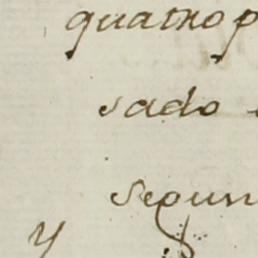 quatro p
sado
segun
y